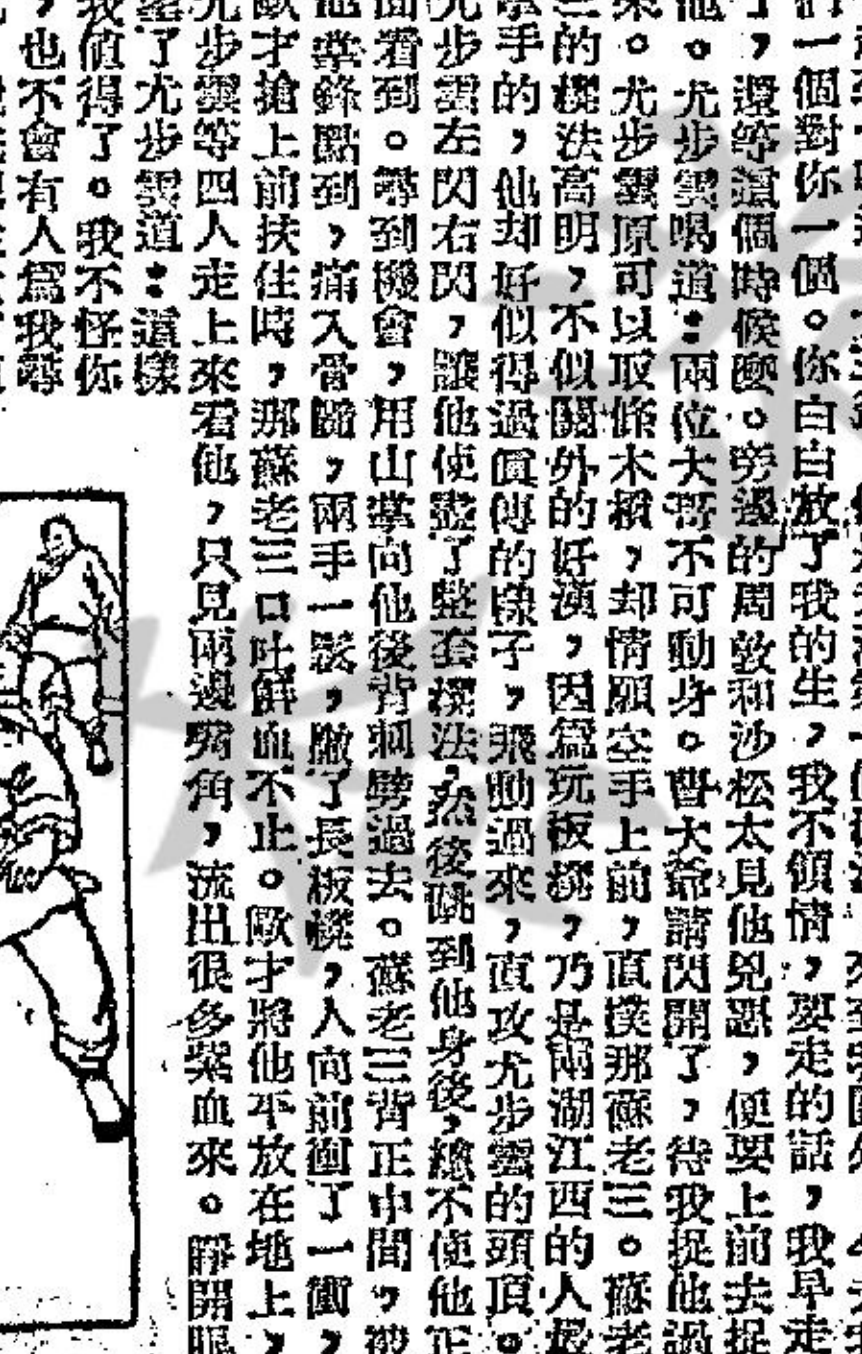 們一個對你一個。你白白放了我的生，我不領情，要走的話，我早走
了，還等這個時候麼。旁邊的周敦和沙松太見他兇惡，便要上前去捉
他。尤步雲喝道：兩位大哥不可動身。曹大爺請閃開了，待我捉他過
來。尤步雲原可以取條木棍，却情願空手上前，直撲那蘇老三。蘇老
三的櫈法高明，不似關外的好漢，因爲玩板櫈，乃是兩湖江西的人最
拿手的，他却好似得過眞傳的樣子，飛動過來，直攻尤步雲的頭頂。
尤步雲左閃右閃，讓他使盡了整套櫈法，然後跳到他身後，總不使他正
面看到。尋到機會，用山掌向他後背刺劈過去。蘇老三背正中間，被
他掌鋒點到，痛入骨髓，兩手一鬆，撇了長板櫈，人向前衝了一衝，
歐才搶上前扶住時，那蘇老三口吐鮮血不止。歐才將他平放在地上，
尤步雲等四人走上來看他，只見兩邊嘴角，流出很多紫血來。睜開眼
了尤步雲道：這樣
我值得了。我不怪你
，也不會有人爲我尋